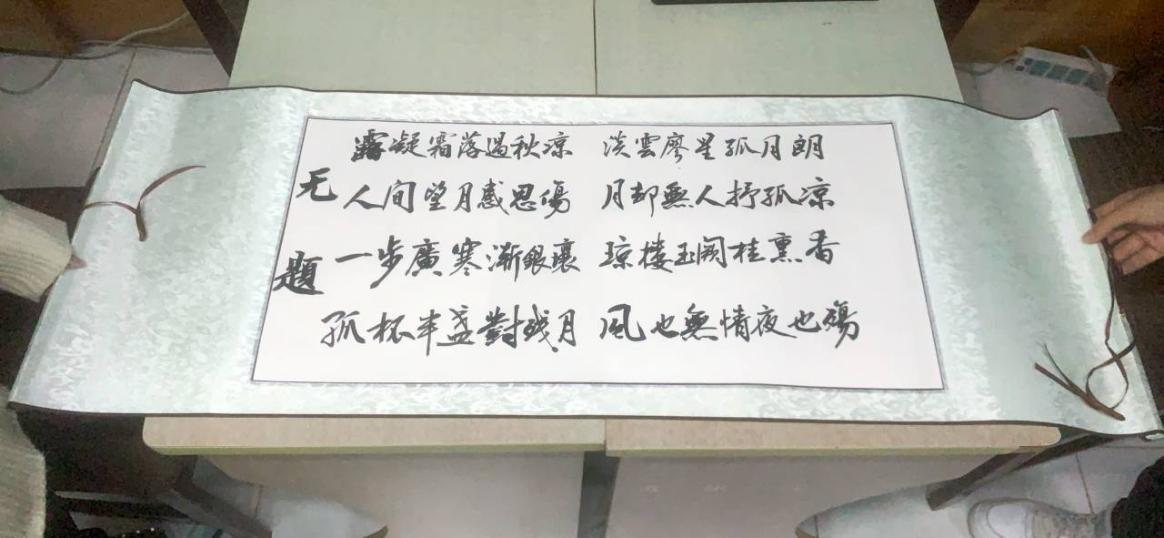 无题
露凝霜落過秋凉 淡雲廖星孤月朗
人间望月感思傷 月却無人抒孤凉
一步廣寒漸銀裹 琼楼玉阙桂熏香
孤杯半盏對残月 風也無情夜也殤